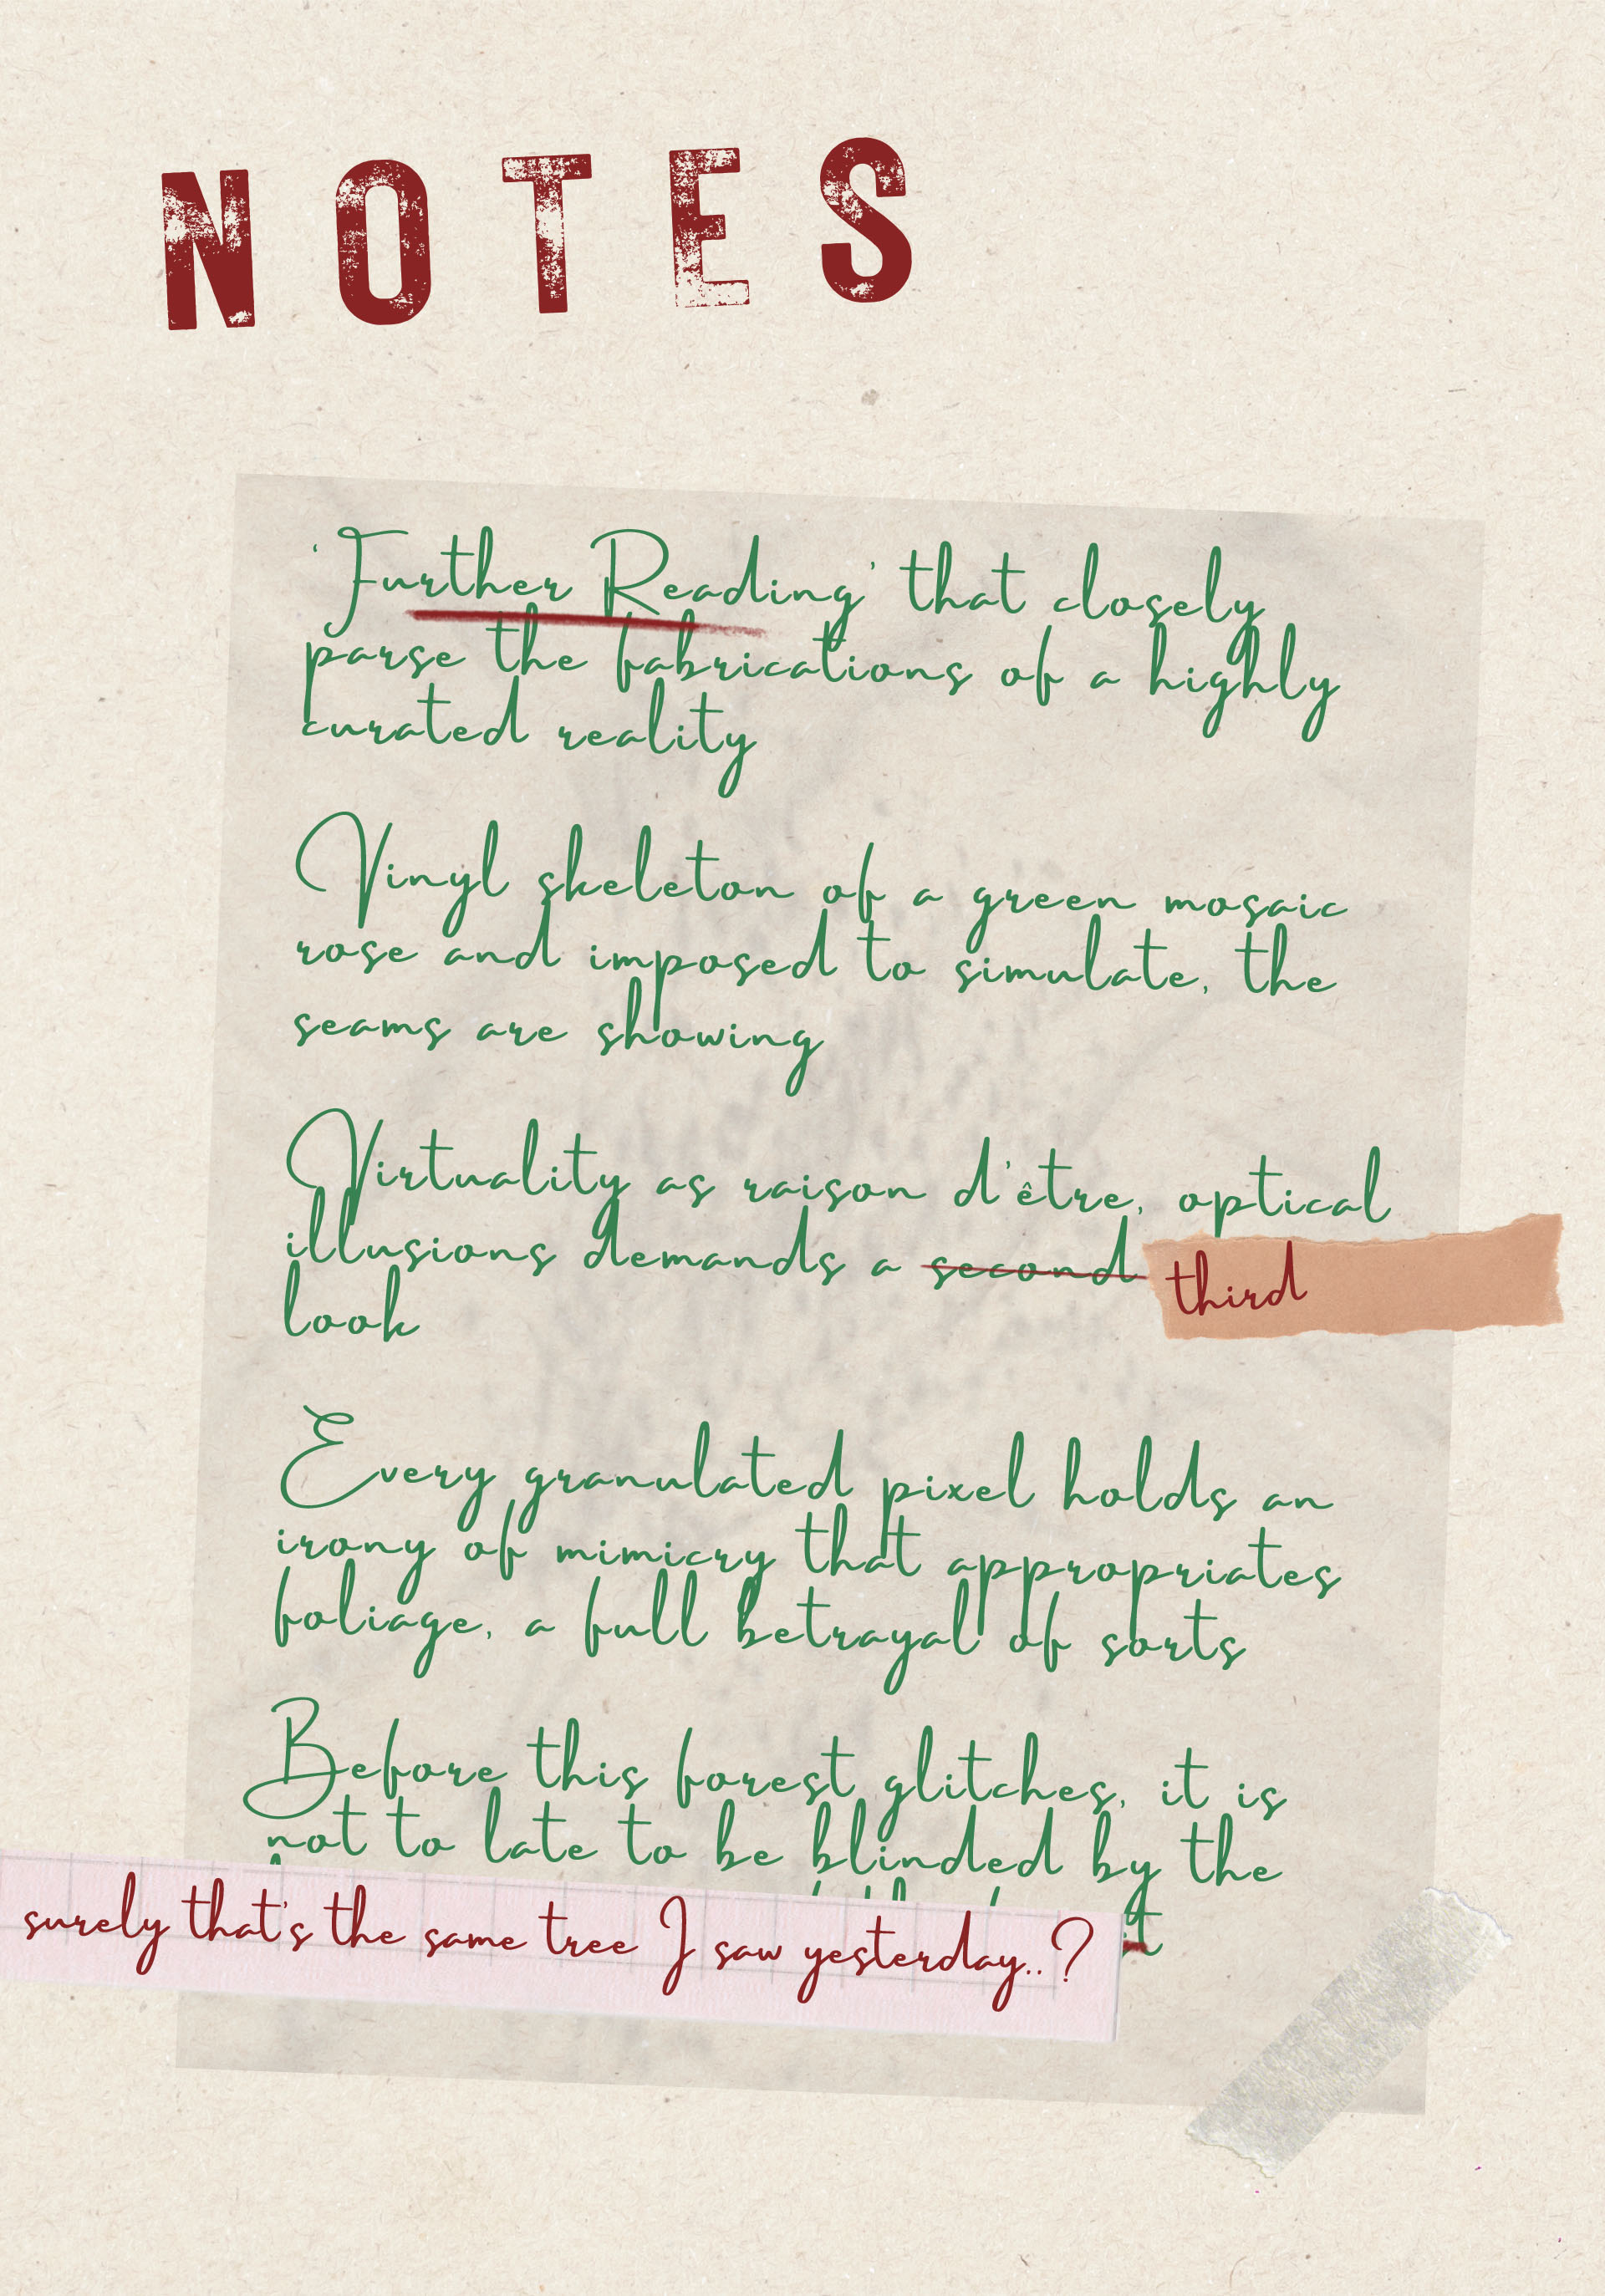 NOTES
'Further Reading' that closely
parse the fabrications of a highly
curated reality
Vinyl skeleton of a green mosaic
rose and imposed to simulate, the
seams are showing
Virtuality as raison d'être, optical
illusions demands a second third
look
Every granulated pixel holds an
irony of mimicry that appropriates
foliage, a full betrayal of sorts
Before this forest glitches, it is
not to late to be blinded by the
surely that's the same tree I saw yesterday..?